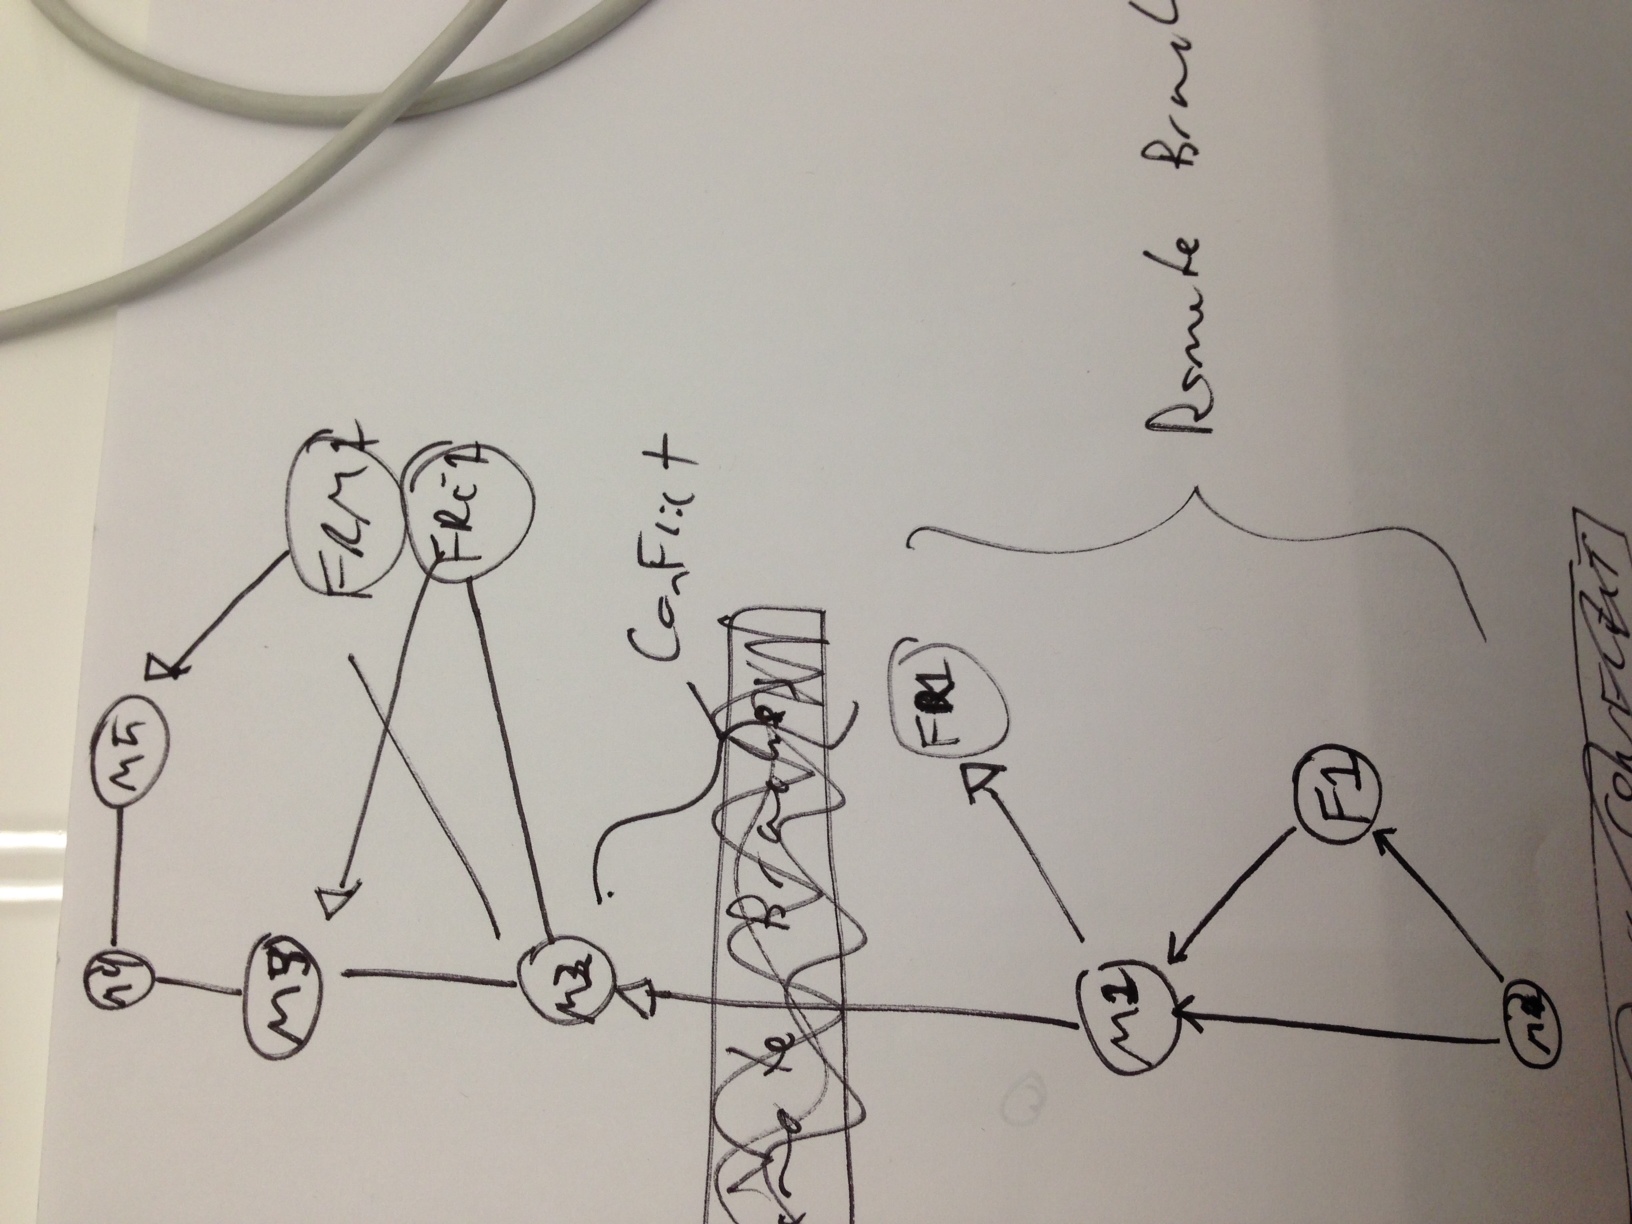 M4
M5
M3
FRM1
FRC1
M2
Conflict
Branches
FR1
M1
Remote Branch
F1
CONFLICT